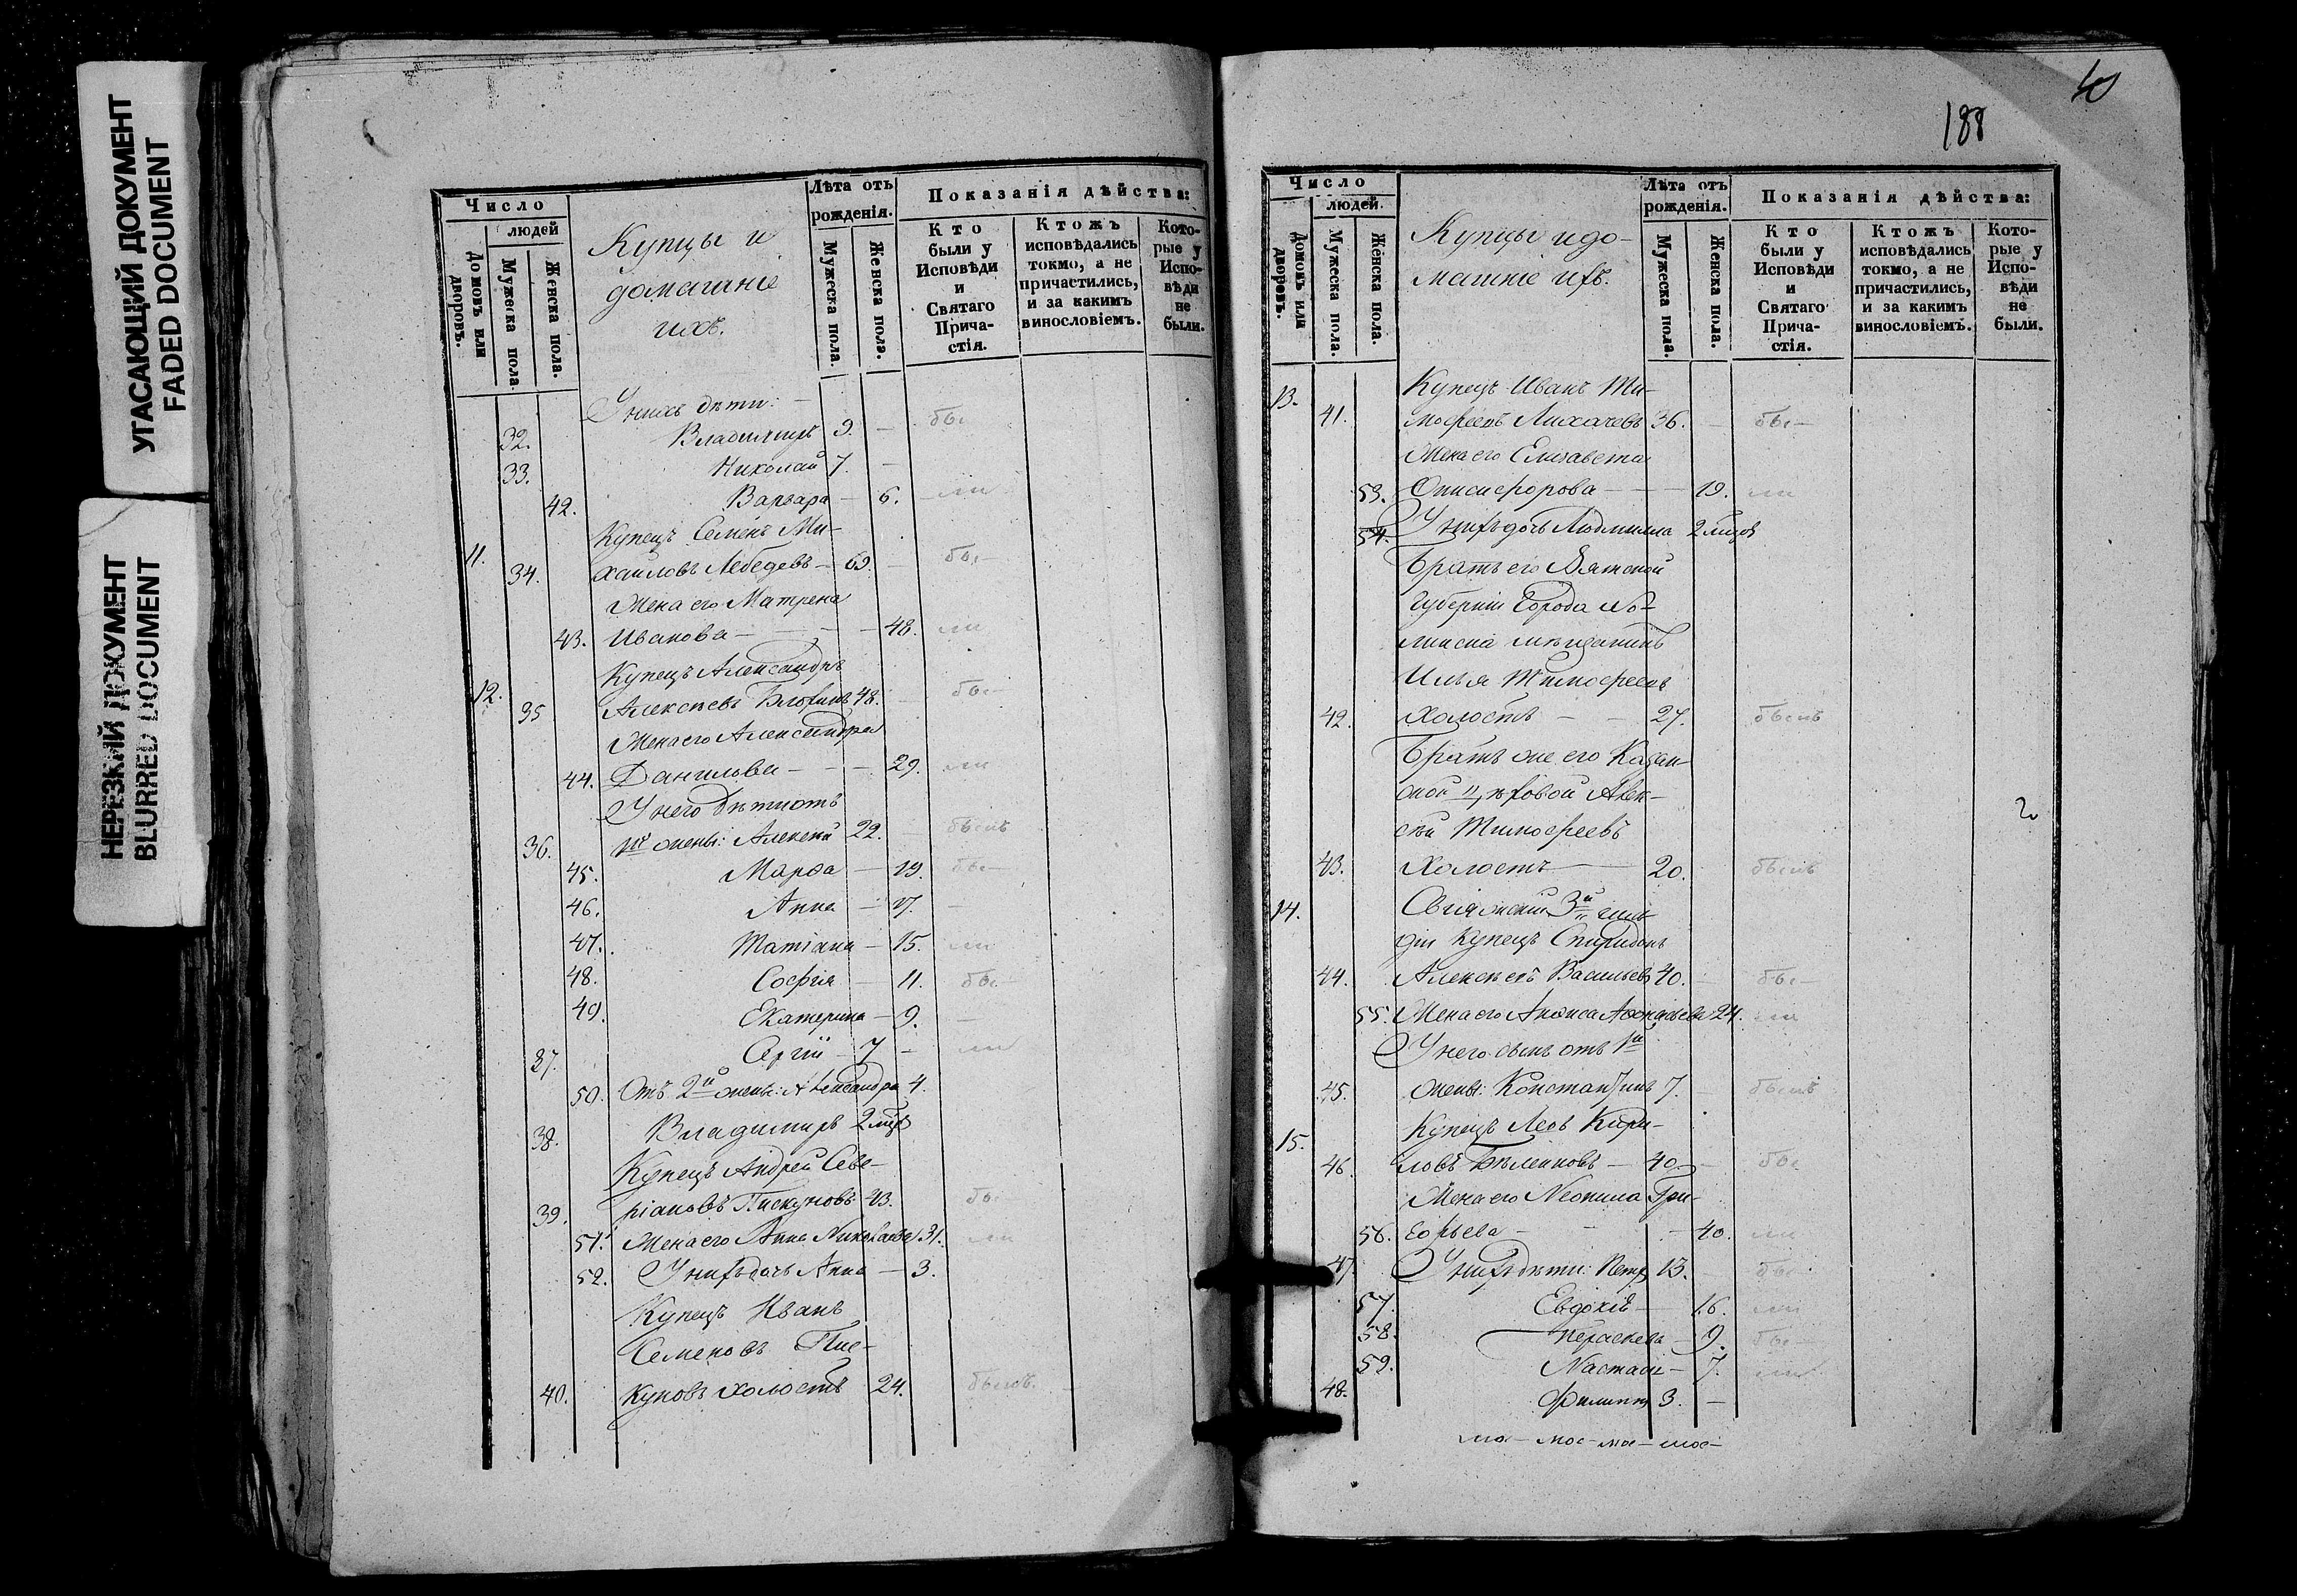 УГАСАЮЩИЙ ДОКУМЕНТ
FADED DOCUMENT
НЕРЕЗКИЙ ДОКУМЕНТ
BLURRED DOCUMENT
Число
людей
Домовъ или дворовъ.
Мужеска пола.
Женска пола.
Купцы и
домашніе
ихъ.
Лѣта отъ
рожденія.
Мужеска пола.
Женска пола.
Показанія дѣйства:
Кто
были у
Исповѣди
и
Святаго
Прича-
стія.
Ктожъ
исповѣдались
токмо, а не
причастились,
и за какимъ
винословіемъ.
Кото-
рые у
Испо-
вѣди
не
были.
У нихъ дѣти: —
32. Владимиръ 9. — бы
33. Николай 7. —
42. Варвара — 6. — ли
Купецъ Семенъ Ми-
11. 34. хайловъ Лебедевъ — 69. — бы —
Жена его Матрена
43. Иванова — 48. ли
Купецъ Александръ
12. 35 Алексѣевъ 48. бы —
Жена его Александра
44. Данилова — 29. ли
У него дѣти отъ
36. 1й жены: Алексѣй 22. былъ
45. Марѳа — 19. бы
46. Анна — 17. —
47. Татіана — 15. ли
48. Софія — 11. бы
49. Екатерина — 9. —
37. Сергій — 7 — ли
50. Отъ 2й жены: Александра 4.
38. Владимиръ 2 мцъ
Купецъ Андрей Севе-
39. ріановъ Пискуновъ 43. бы
51. Жена его Анна Николаева 31. ли
52. У нихъ дочь Анна — 3.
Купецъ Иванъ
Семеновъ Пис-
40. куновъ холостъ 24. былъ.
40
188
Число
людей.
Домовъ или дворовъ.
Мужеска пола.
Женска пола.
Купцы и до-
машніе ихъ.
Лѣта отъ
рожденія.
Мужеска пола.
Женска пола.
Показанія дѣйства:
Кто
были у
Исповѣди
и
Святаго
Прича-
стія.
Ктожъ
исповѣдались
токмо, а не
причастились,
и за какимъ
винословіемъ.
Кото-
рые у
Испо-
вѣди
не
были.
13. Купецъ Иванъ Ти-
41. мофеевъ Лихачевъ 36. — бы —
Жена его Елизавета
53. Онисифорова — 19. ли
54. У нихъ дочь Людмила 2 мцов
Братъ его Вятской
губерніи города
мѣщанинъ
Илья Тимофеевъ
42. холостъ — 27. былъ
Братъ же его Казан-
ской цѣховой Алек-
сѣй Тимофеевъ
43. Холостъ — 20. былъ
14. Свіяжскій 3й гиль-
діи купецъ Спиридонъ
44. Алексѣевъ Васильевъ 40. — бы —
55. Жена его Анѳиса 24. ли
У него сынъ отъ 1й
45. жены: Константинъ 7. — былъ
15. Купецъ Левъ Кири-
46 ловъ Бѣленковъ — 40 — бы
Жена его Неонила Гри-
56. горьева — 40. ли
47. У нихъ дѣти: Петръ 13. бы
57. Евдокія — 16. ли
58. Параскева — 9. бы
59. Настасія — 7. ли
48. Филиппъ 3. —